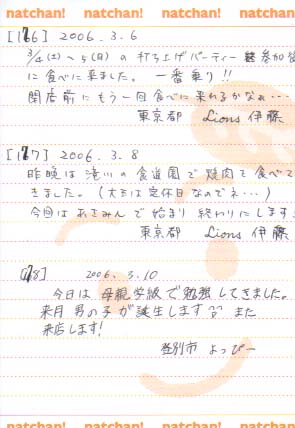 natchan! natchan! natchan! natchan!
[176] 2006.3.6
3/4(土)〜5(日)の打ち上げパーティー参加後
に食べに来ました。一番乗り!!
閉店前にもう一回食べに来れるかなぁ・・・
東京都 Lions 伊藤
[177] 2006.3.8
昨晩は滝川の食道園で焼肉を食べて
きました。(大王は定休日なのでネ・・・)
今回はあさみんで始まり終わりにします
東京都 Lions 伊藤
[178] 2006.3.10
今日は母親学級で勉強してきました。
来月男の子が誕生します^^また
来店します!
登別市 よっぴー
natchan! natchan! natchan! natchan!